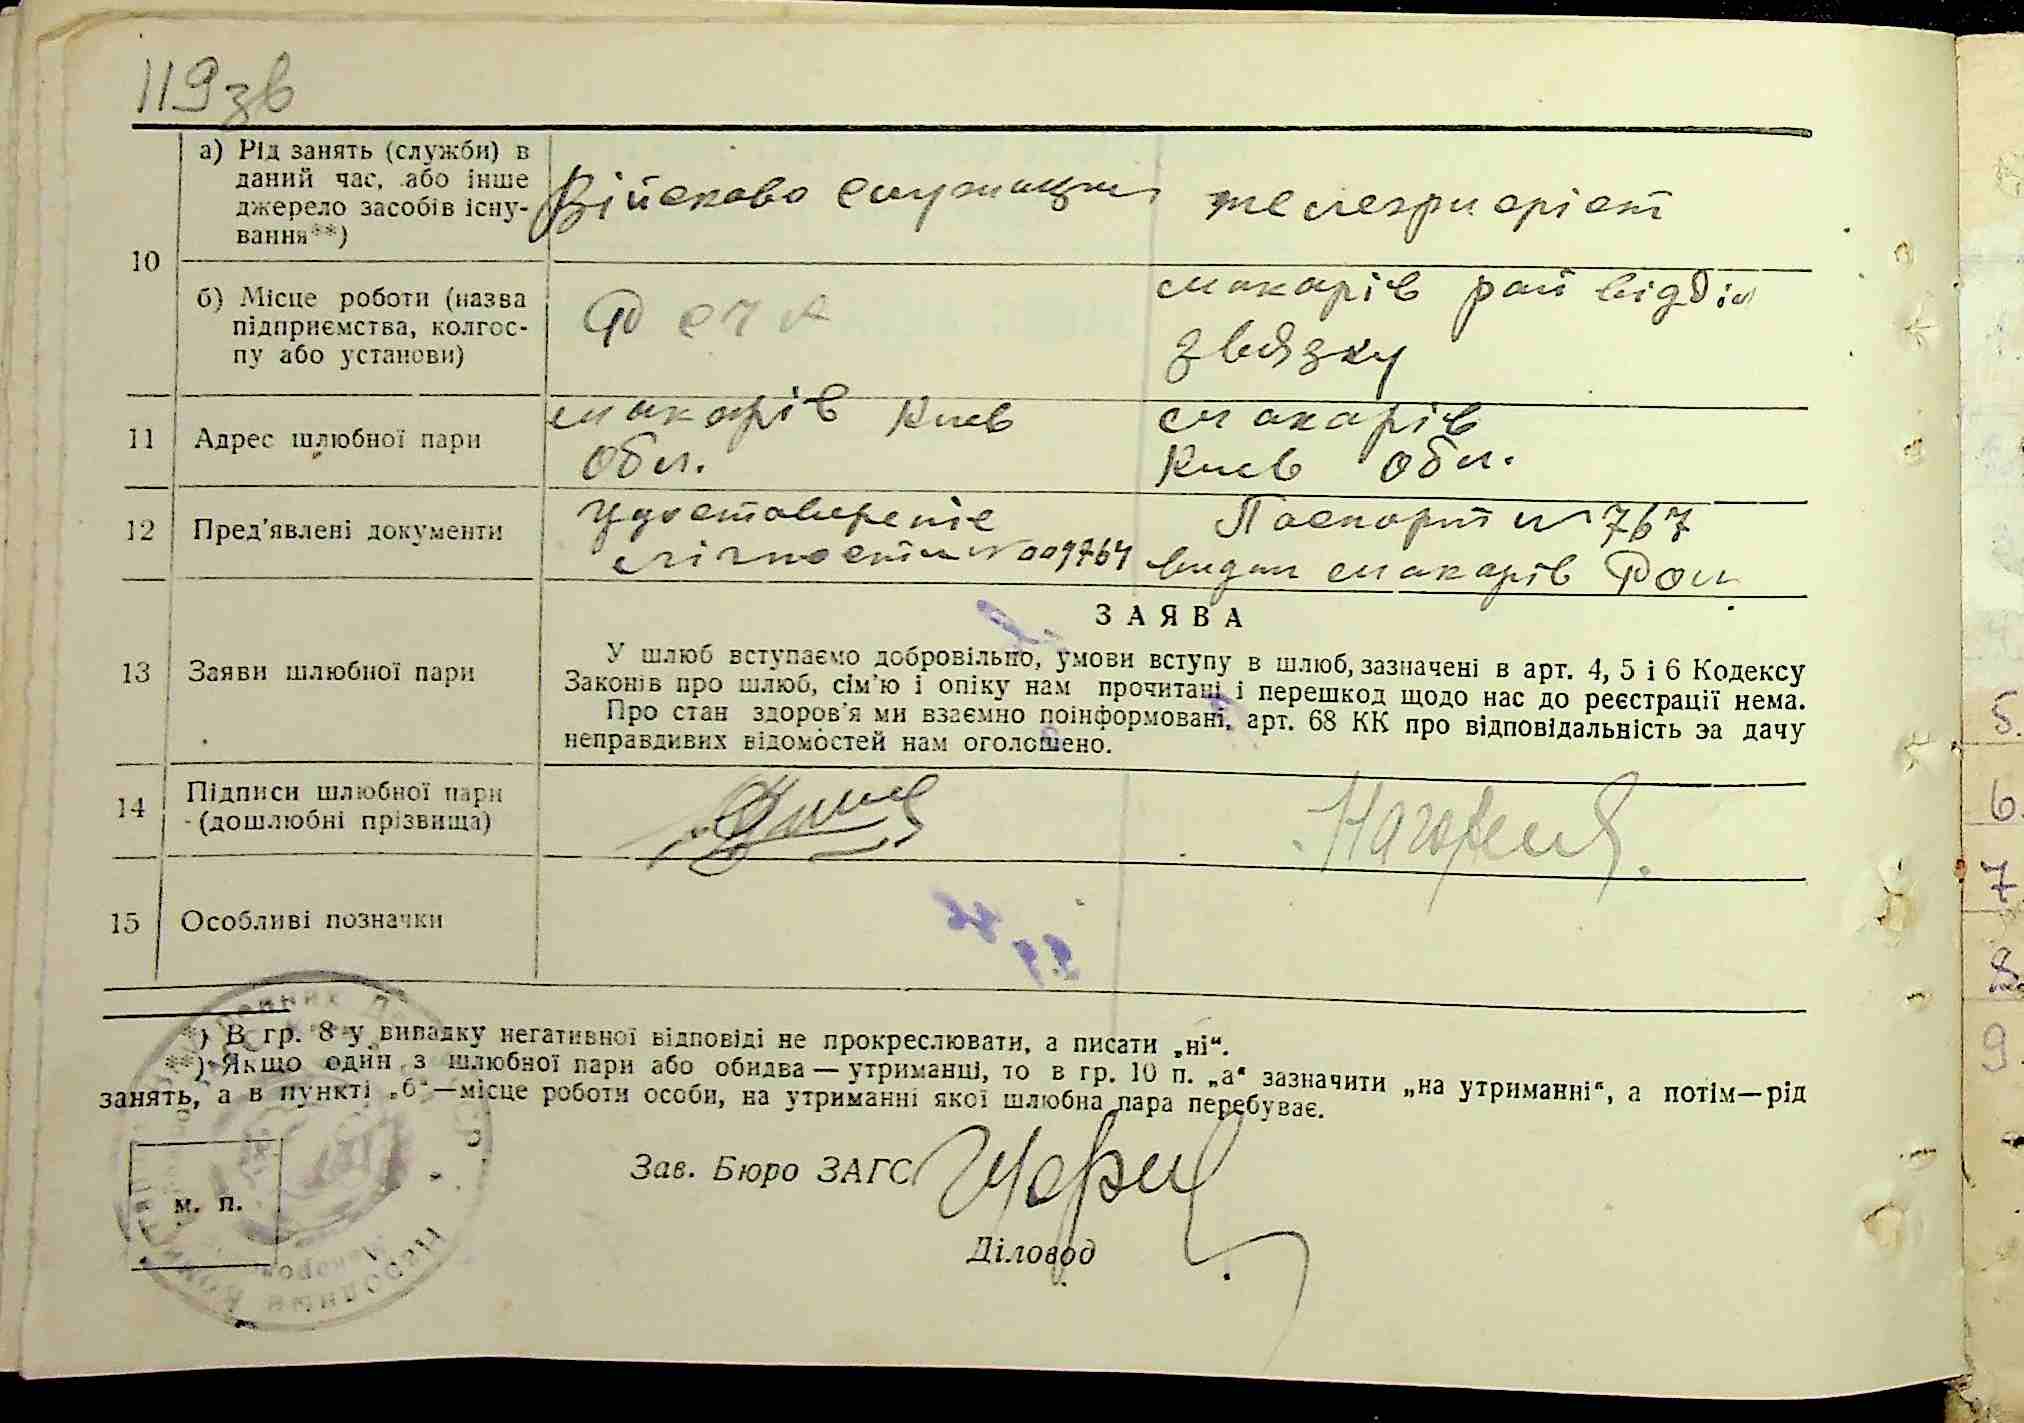 119зв
а) Рід занять (служби) в
даний час, або інше
джерело засобів існу-
вання**)
Військово служащий телеграфіст
10
б) Місце роботи (назва
підприємства, колгос-
пу або установи)
макарів рай відділ
звязку
11 Адрес шлюбної пари
макарів Киев
обл.
макарів
Киев обл.
12 Пред'явлені документи
Удостовереніе
лічности № 009764
Паспорт № 767
видан макарів РОМ
13 Заяви шлюбної пари
ЗАЯВА
У шлюб вступаємо добровільно, умови вступу в шлюб, зазначені в арт. 4, 5 і 6 Кодексу
Законів про шлюб, сім'ю і опіку нам прочитані і перешкод щодо нас до реєстрації нема.
Про стан здоров'я ми взаємно поінформовані, арт. 68 КК про відповідальність за дачу
неправдивих відомостей нам оголошено.
14 Підписи шлюбної пари
(дошлюбні прізвища)
15 Особливі позначки
*) В гр. 8 у випадку негативної відповіді не прокреслювати, а писати „ні“.
**) Якщо один з шлюбної пари або обидва — утриманці, то в гр. 10 п. „а“ зазначити „на утриманні“, а потім—рід
занять, а в пункті „б“—місце роботи особи, на утриманні якої шлюбна пара перебуває.
Зав. Бюро ЗАГС
м. п.
Діловод
5.
6.
7
8
9.